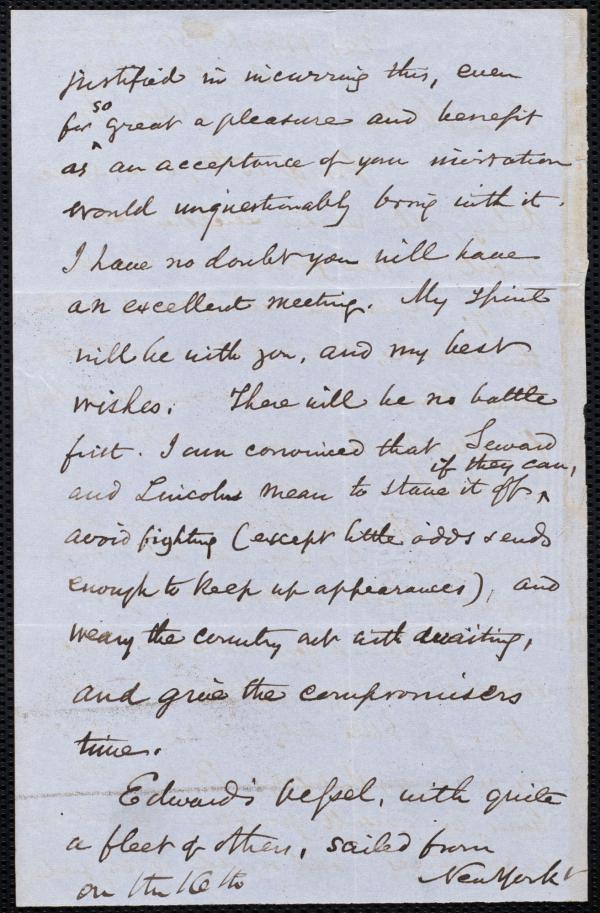 justified in incurring this, even
for so great a pleasure and benefit
as an acceptance of your invitation
would unquestionably bring with it.
I have no doubt you will have
an excellent meeting. My spirit
will be with you, and my best
wishes. There will be no battle
first. I am convinced that Seward
and Lincoln mean to stave it off, if they can,
avoid fighting (except little odds & ends
enough to keep up appearances), and
weary the country out with awaiting,
and give the compromisers
time.
Edward's vessel, with quite
a fleet of others, sailed from
New York
on the 16th